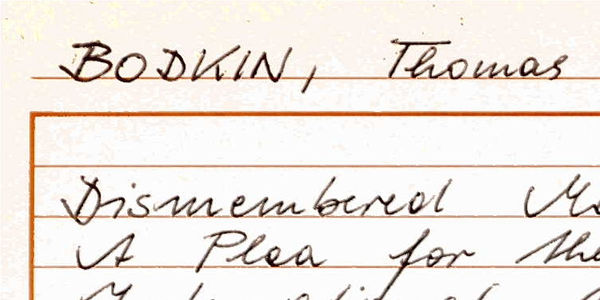 BODKIN, Thomas
Dismembered
A Plea for the